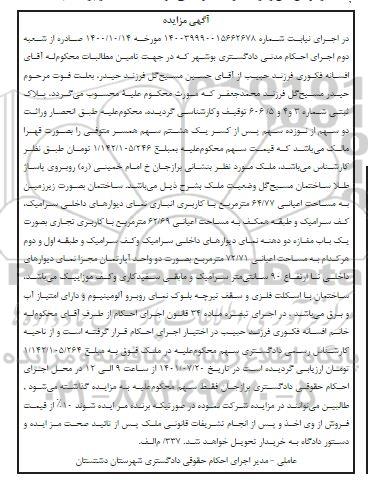 آگهی مزایده
در اجرای نیابت شماره ۱۴۰۰۳۹۹۹۰۰۱۵۶۶۲۶۷۸ مورخه ۱۴۰۰/۱۰/۱۴ صادره از شعبه
دوم اجرای احکام مدنی دادگستری بوشهر که در جهت تامین مطالبات محکوم‌له آقای
افسانه فکوری فرزند حبیب از آقای حسین مسیح‌گل فرزند حیدر، بعلت فوت مرحوم
حیدر مسیح‌گل فرزند محمدجعفر که مورث محکوم علیه محسوب می‌گردد، پلاک
ثبتی شماره ۳ و۴ و ۶۰۶/۵ توقیف وکارشناسی گردیده، محکوم‌علیه طبق انحصار وراثت
دو سهم از نوزده سهم پس از کسر یک هشتم سهم همسر متوفی را بصورت قهرا
مالک می‌باشد که قیمت سهم محکوم‌علیه بمبلغ ۱/۱۴۲/۱۰۵/۲۴۶ تومان طبق نظر
کارشناس می‌باشد، ملک مورد نظر بنشانی برازجان خ امام خمینی (ره) روبروی پاساژ
طلا ساختمان مسیح‌گل وضعیت ملک بشرح ذیل می‌باشد. ساختمان بصورت زیرزمین
به مساحت اعیانی ۶۴/۷۷ مترمربع با کاربری انباری نمای دیوارهای داخلی سرامیک،
کف سرامیک و طبقه همکف به مساحت اعیانی ۶۲/۶۹ مترمربع با کاربری تجاری بصورت
یک باب مغازه دو دهنه نمای دیوارهای داخلی سرامیک وکف سرامیک و طبقه اول و دوم
هرکدام به مساحت اعیانی ۷۲/۷۱ مترمربع بصورت دو واحد آپارتمان مجزا نمای دیوارهای
داخلی تا ارتفاع ۹۰ سانتی‌متر سرامیک و مابقی سفیدکاری وکف موزاییک می‌باشد،
ساختمان با اسکلت فلزی و سقف تیرچه بلوک نمای روبرو آلومینیوم و دارای امتیاز آب
و برق می‌باشد ، در اجرای تبصره ماده ۳۴ قانون اجرای احکام از طرف آقای محکوم‌له
خانم افسانه فکوری فرزند حبیب در اختیار اجرای احکام قرار گرفته است و از ناحیه
کارشناس رسمی دادگستری سهم محکوم‌علیه در ملک فوق به مبلغ ۱/۱۴۲/۱۰۵/۲۶۴
تومان ارزیابی گردیده است در تاریخ ۱۴۰۱/۰۷/۲۰ از ساعت ۹ الی ۱۲ در محل اجرای
احکام حقوقی دادگستری برازجان فقط سهم محکوم‌علیه به مزایده گذاشته می‌شود ،
طالبین می‌توانند در مزایده شرکت نموده در صورتیکه برنده مزایده شوند ۱۰٪ از قیمت
فروش از وی اخذ و پس از انجام تشریفات قانونی ملک پس از تائید صحت مزایده و
دستور دادگاه به خریدار تحویل خواهد شد. ۳۳۷/ م‌الف.
عاملی - مدیر اجرای احکام حقوقی دادگستری شهرستان دشتستان